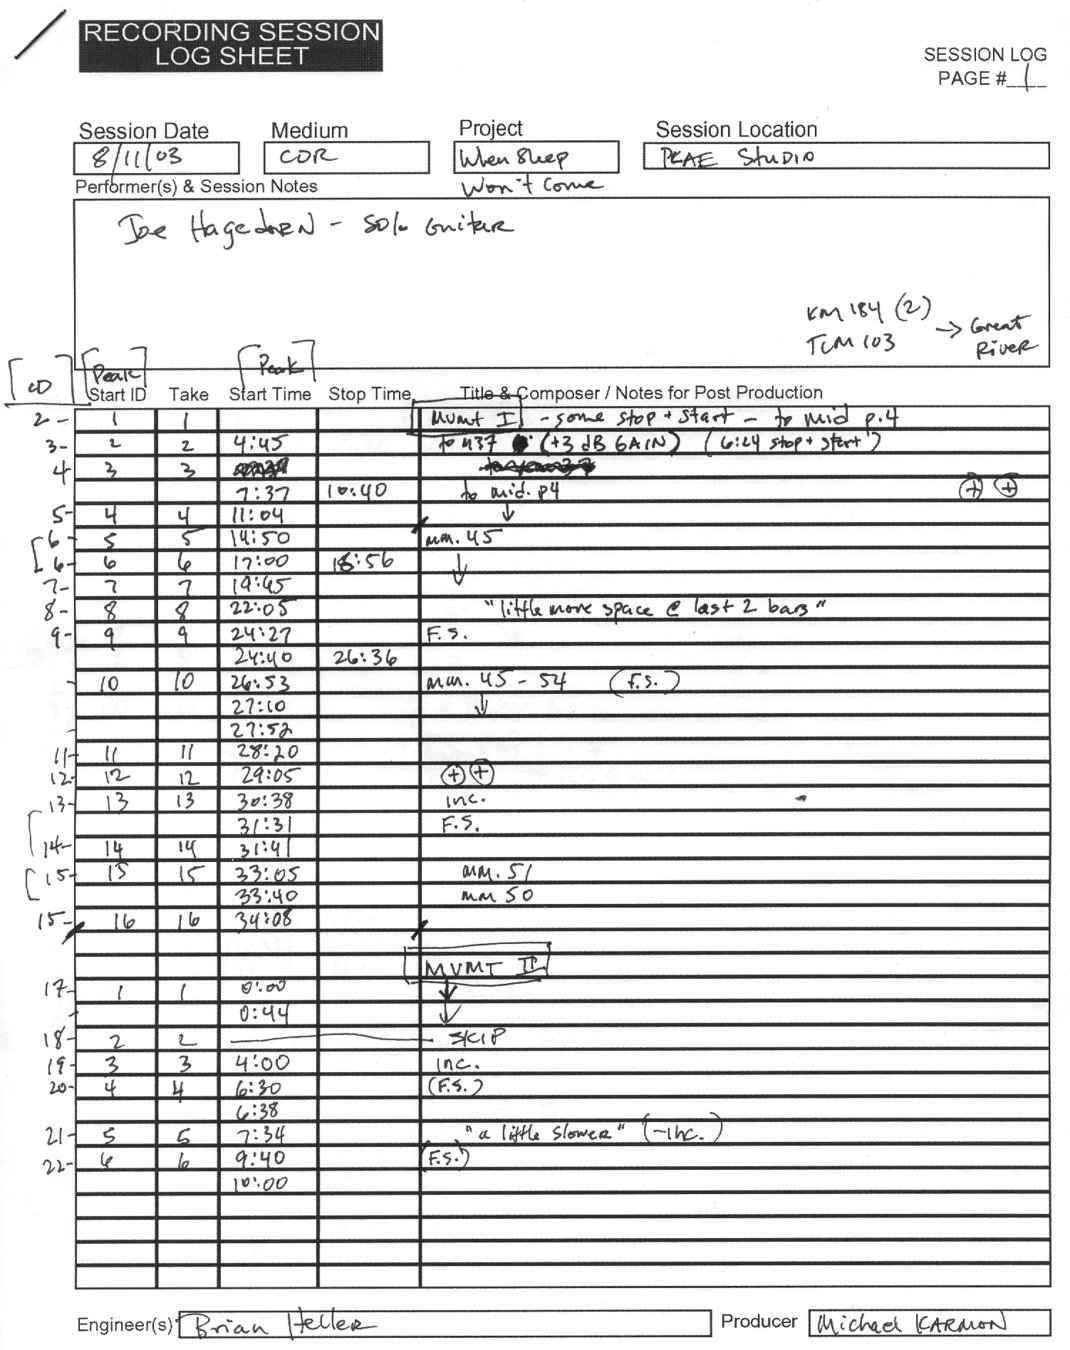 RECORDING SESSION
LOG SHEET
SESSION LOG
PAGE # 1
Session Date Medium Project Session Location
8/11/03 CDR When Sleep PEAE Studio
Won't Come
Performer(s) & Session Notes
Joe Hagedorn - Solo Guitar
KM 184 (2)
TLM 103 → Great
River
[CD] [Peak] [Peak]
Start ID Take Start Time Stop Time Title & Composer / Notes for Post Production
2- 1 1 Mvmt I - some stop + start - to mid p.4
3- 2 2 4:45 to m37 (+3 dB GAIN) (6:24 stop + start)
4 3 3
7:37 10:40 to mid. p4 + +
5- 4 4 11:04 ↓
6- 5 5 14:50 mm. 45
6- 6 6 17:00 18:56 ↓
7- 7 7 19:45
8- 8 8 22:05 "little more space @ last 2 bars"
9- 9 9 24:27 F.S.
24:40 26:36
- 10 10 26:53 mm. 45 - 54 (F.S.)
27:10 ↓
- 27:52
11- 11 11 28:20
12- 12 12 29:05 + +
13- 13 13 30:38 inc.
31:31 F.S.
14- 14 14 31:41
15- 15 15 33:05 mm. 51
33:40 mm 50
15- 16 16 34:08
MVMT II
17- 1 1 0:00 ↓
- 0:44 ↓
18- 2 2 SKIP
19- 3 3 4:00 inc.
20- 4 4 6:30 (F.S.)
6:38
21- 5 5 7:34 "a little slower" (-inc.)
22- 6 6 9:40 (F.S.)
10:00
Engineer(s) Brian Heller Producer Michael KARMON